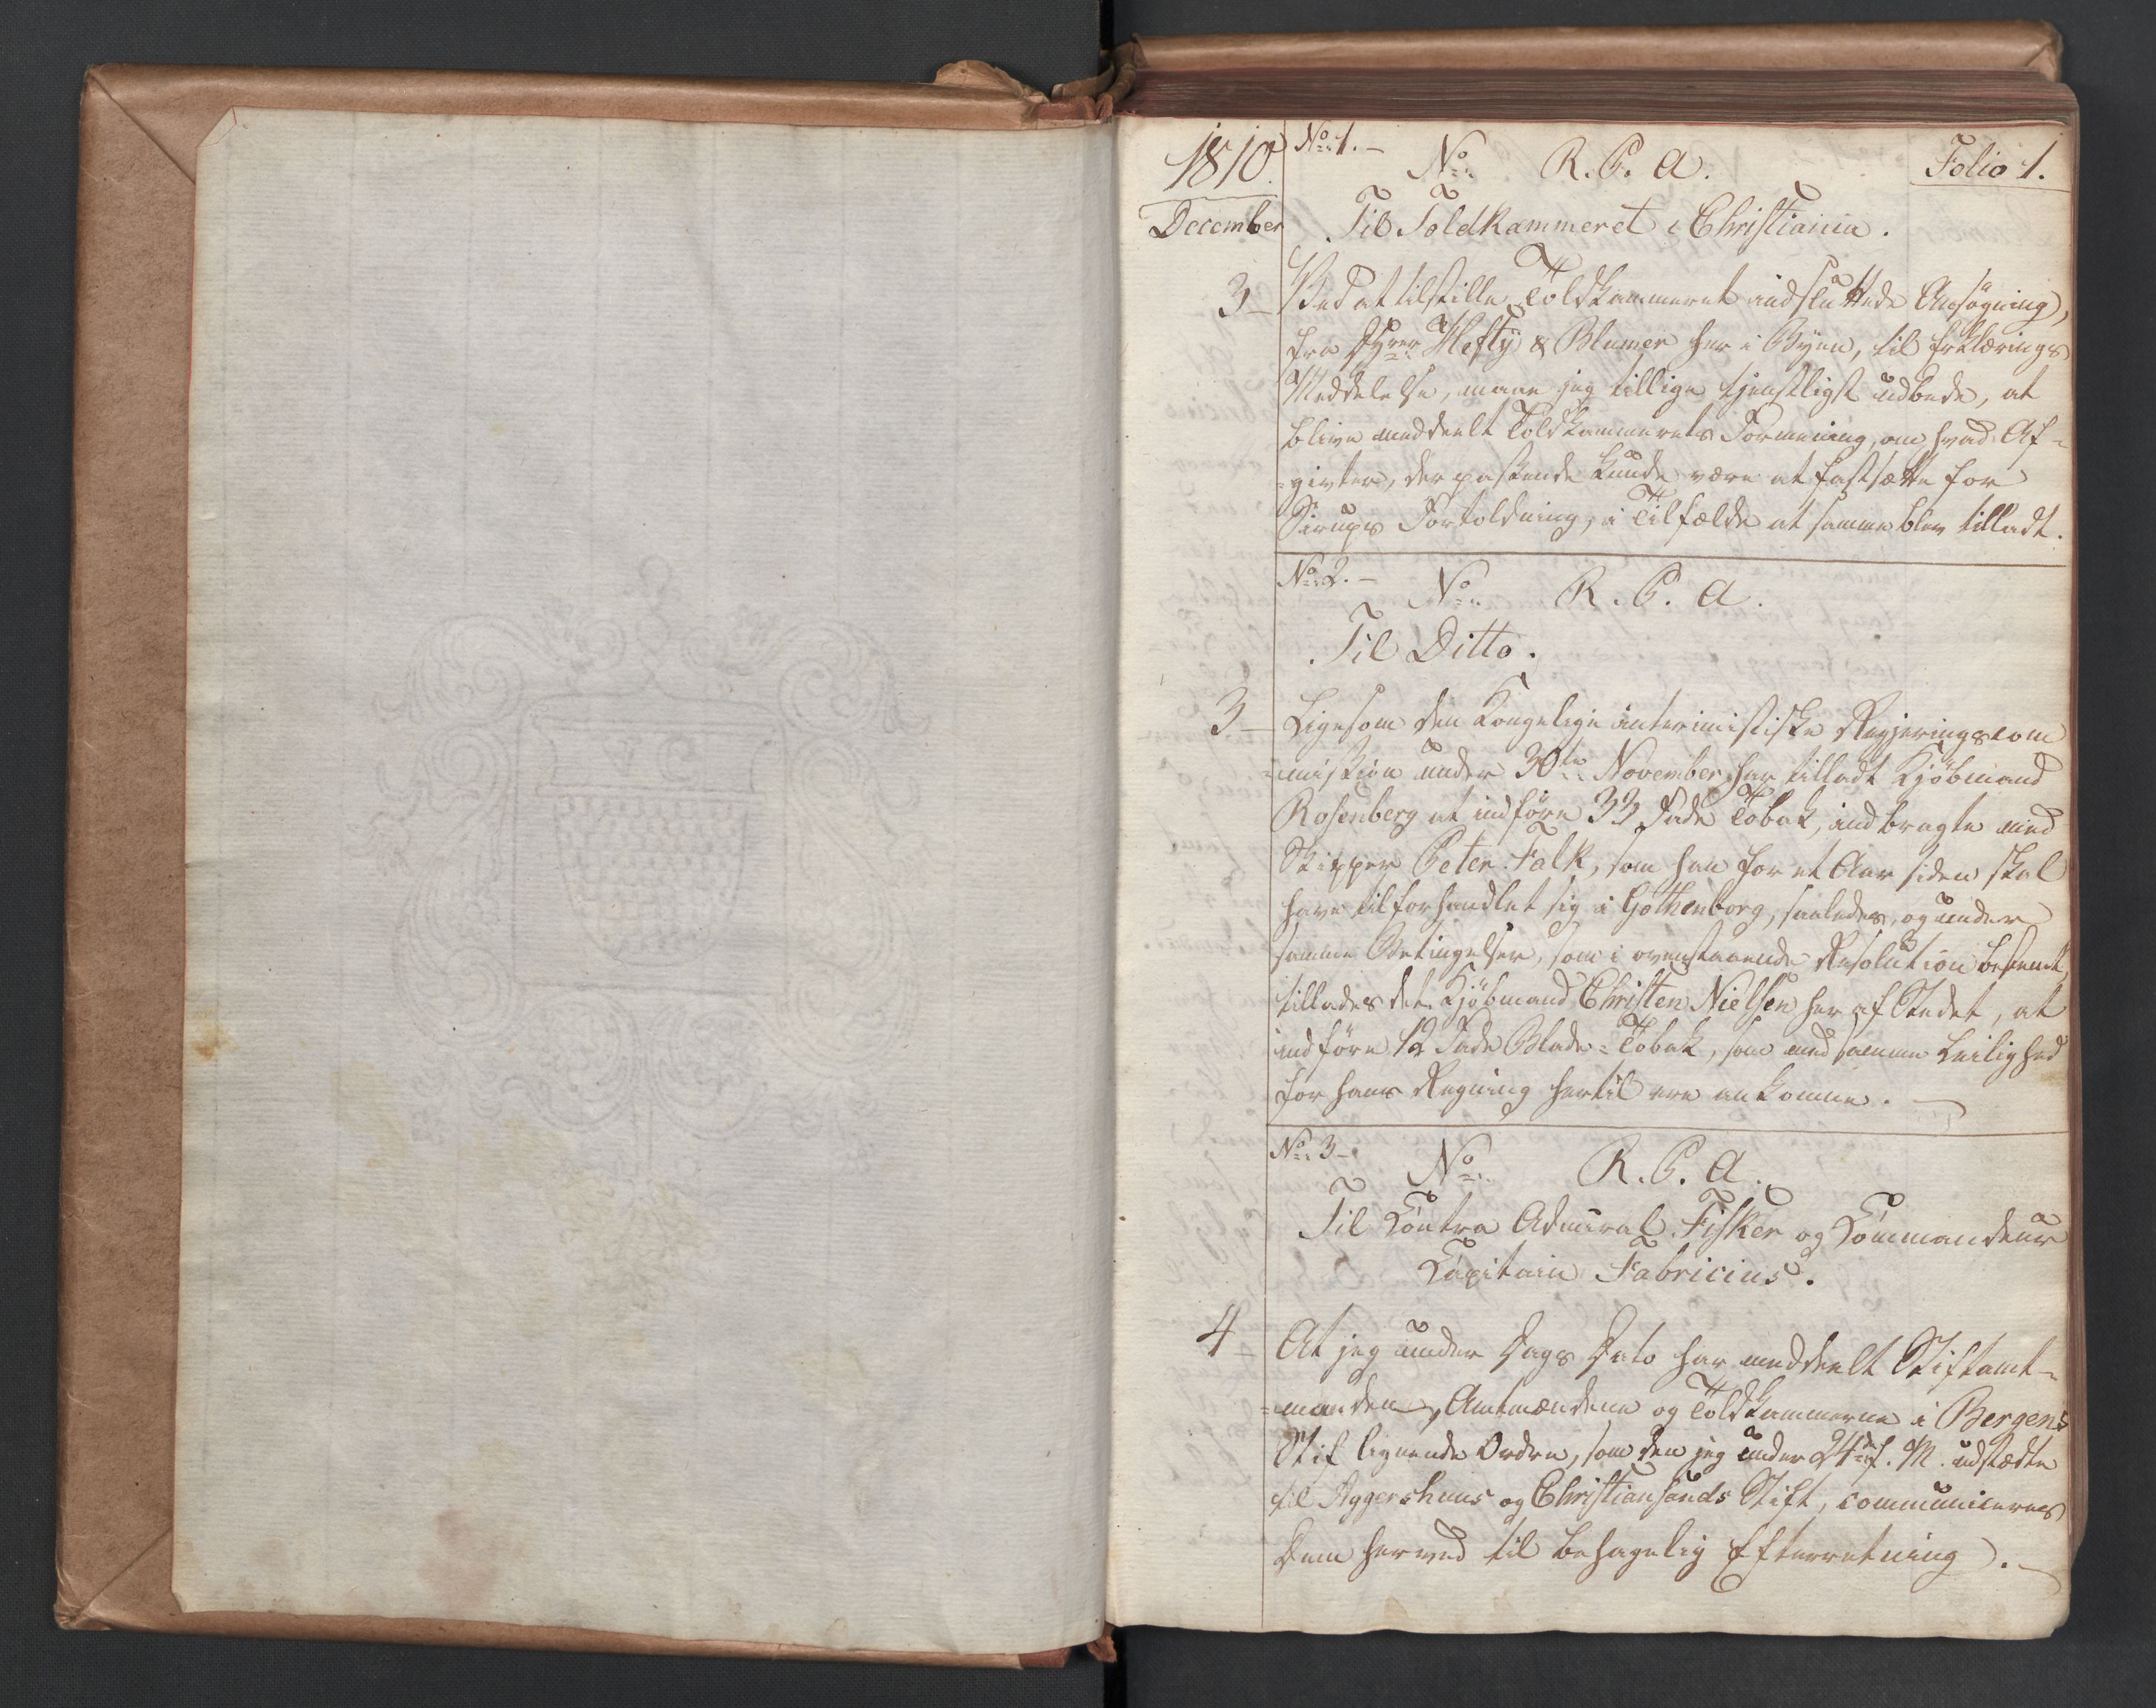 1810. No. 1.– No. R. P. A. Folio 1.
December Til Toldkammeret i Christiania.
3– Ved at tilstille Toldkammeret indsluttede Ansøgning,
fra Hrrer Hefty & Blumer her i Byen, til Erklærings
Meddelelse, maae jeg tillige tjenstligst udbede, at
blive meddeelt Toldkammerets Formening, om hvad Af-
-givter, der passende kunde være at fastsætte for
Sirups Fortoldning, i Tilfælde at samme blev tilladt.
No. 2.– No. R. P. A.
Til Ditto.
3– Ligesom den Kongelige interimistiske Regjeringscom
-mission under 30te November har tilladt Kjøbmand
Rosenberg at indføre 33 Fade Tobak, indbragte med
Skipper Peter Falk, som han for et Aar siden skal
have tilforhandlet sig i Gothenborg, saaledes, og under
samme Betingelser, som i ovenstaaende Resolution bestemt,
tillades det Kjøbmand Christen Nielsen her af Stedet, at
indføre 12 Fade Blade-Tobak, som med samme Leilighed
for hans Regning hertil ere ankomne. –
No. 3– No. R. P. A.
Til Contra Admiral Fisker og Commandeur
Capitain Fabricius.
4– At jeg under Dags Dato har meddeelt Stiftamt-
-manden, Amtmændene og Toldkammerne i Bergens
Stift lignende Ordre, som den jeg under 24de f. M. udstædte
til Aggershuus og Christiansands Stift, communiceres
Dem herved til behagelig Efterretning. –